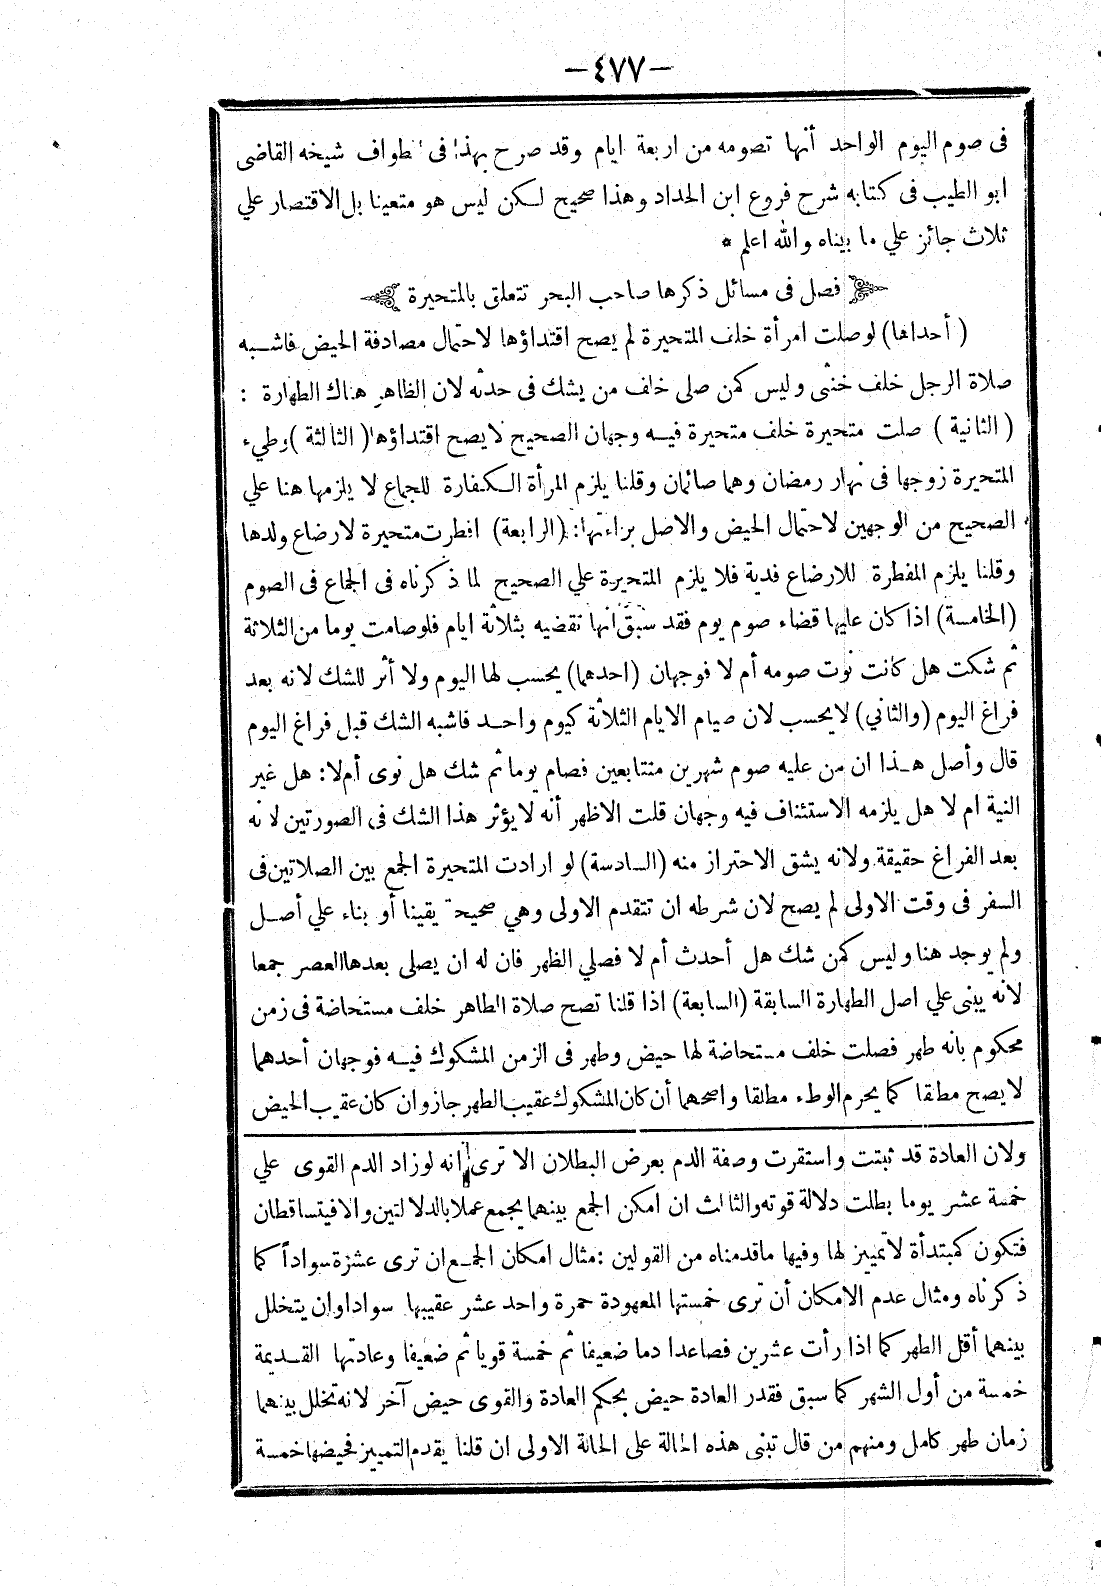 —٤٧٧—
فى صوم اليوم الواحد أنها تصومه من اربعة ايام وقد صرح بهذا فى الطواف شيخه القاضى
ابو الطيب فى كتابه شرح فروع ابن الحداد وهذا صحيح لكن ليس هو متعينا بل الاقتصار علي
ثلاث جائز علي ما بيناه والله اعلم *
فصل فى مسائل ذكرها صاحب البحر تتعلق بالمتحيرة
(أحداها) لو صلت امرأة خلف المتحيرة لم يصح اقتداؤها لاحتمال مصادفة الحيض فاشبه
صلاة الرجل خلف خنثى وليس كمن صلى خلف من يشك فى حدثه لان الظاهر هناك الطهارة :
(الثانية) صلت متحيرة خلف متحيرة فيه وجهان الصحيح لا يصح اقتداؤها (الثالثة) وطيء
المتحيرة زوجها فى نهار رمضان وهما صائمان وقلنا يلزم المرأة الكفارة للجماع لا يلزمها هنا علي
الصحيح من الوجهين لاحتمال الحيض والاصل براءتها : (الرابعة) افطرت متحيرة لارضاع ولدها
وقلنا يلزم المفطرة للارضاع فدية فلا يلزم المتحيرة علي الصحيح لما ذكرناه فى الجماع فى الصوم
(الخامسة) اذا كان عليها قضاء صوم يوم فقد سبق أنها تقضيه بثلاثة ايام فلو صامت يوما من الثلاثة
ثم شكت هل كانت نوت صومه أم لا فوجهان (احدهما) يحسب لها اليوم ولا أثر للشك لانه بعد
فراغ اليوم (والثاني) لا يحسب لان صيام الايام الثلاثة كيوم واحد فاشبه الشك قبل فراغ اليوم
قال وأصل هذا ان من عليه صوم شهرين متتابعين فصام يوما ثم شك هل نوى أم لا : هل غير
النية ام لا هل يلزمه الاستئناف فيه وجهان قلت الاظهر أنه لا يؤثر هذا الشك فى الصورتين لانه
بعد الفراغ حقيقة ولانه يشق الاحتراز منه (السادسة) لو ارادت المتحيرة الجمع بين الصلاتين فى
السفر فى وقت الاولى لم يصح لان شرطه ان تتقدم الاولى وهي صحيحة يقينا أو بناء علي أصل
ولم يوجد هنا وليس كمن شك هل أحدث أم لا فصلي الظهر فان له ان يصلى بعدها العصر جمعا
لانه يبنى علي اصل الطهارة السابقة (السابعة) اذا قلنا تصح صلاة الطاهر خلف مستحاضة فى زمن
محكوم بانه طهر فصلت خلف مستحاضة لها حيض وطهر فى الزمن المشكوك فيه فوجهان أحدهما
لا يصح مطلقا كما يحرم الوطء مطلقا واصحهما أن كان المشكوك عقيب الطهر جاز وان كان عقيب الحيض
ولان العادة قد ثبتت واستقرت وصفة الدم بعرض البطلان الا ترى انه لو زاد الدم القوى علي
خمسة عشر يوما بطلت دلالة قوته والثالث ان امكن الجمع بينهما يجمع عملا بالدلالتين والا فيتساقطان
فتكون كمبتدأة لا تمييز لها وفيها ما قدمناه من القولين : مثال امكان الجمع ان ترى عشرة سواداً كما
ذكرناه ومثال عدم الامكان أن ترى خمستها المعهودة حمرة واحد عشر عقيبها سوادا وان يتخلل
بينهما أقل الطهر كما اذا رأت عشرين فصاعدا دما ضعيفا ثم خمسة قويا ثم ضعيفا وعادتها القديمة
خمسة من أول الشهر كما سبق فقدر العادة حيض بحكم العادة والقوى حيض آخر لانه تخلل بينهما
زمان طهر كامل ومنهم من قال تبنى هذه الحالة على الحالة الاولى ان قلنا يقدم التمييز فحيضها خمسة